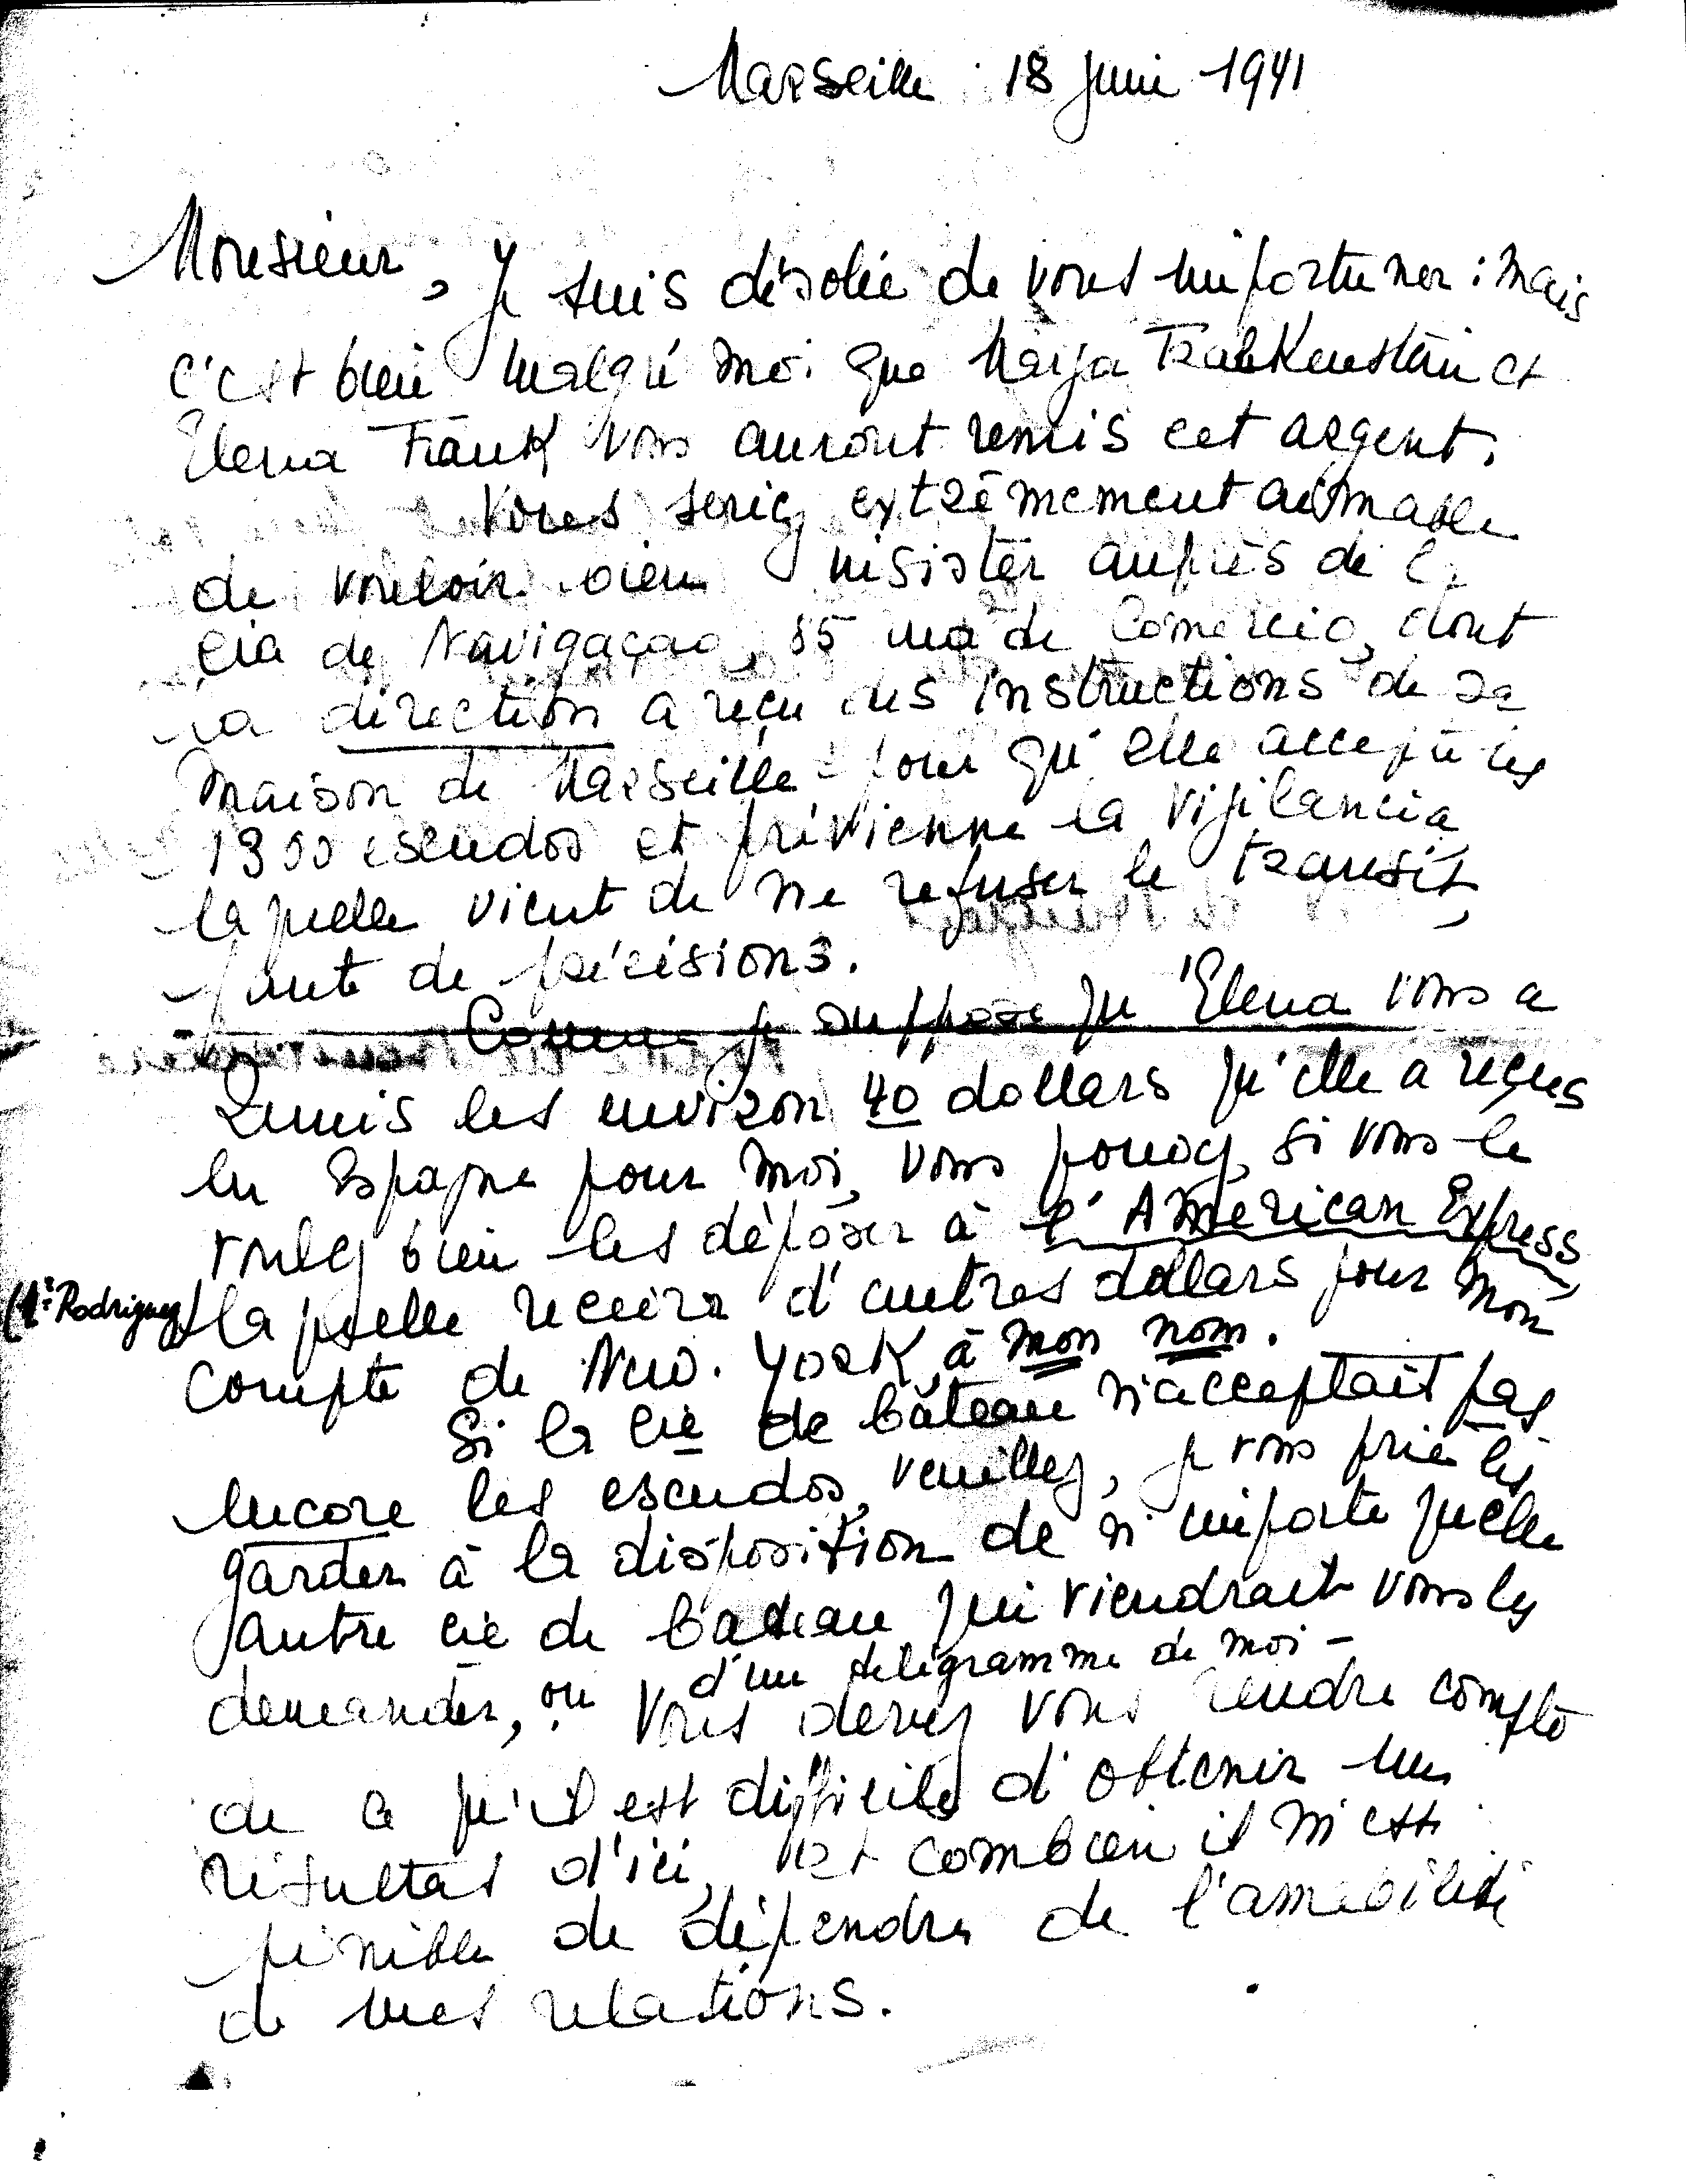 Marseille 18 Juin 1941
Monsieur, Je suis désolée de vous importuner : mais
c'est bien malgré moi que
Elena Frank vous auront remis cet argent.
Vous seriez extrêmement aimable
de vouloir bien insister auprès de la
Cia de Navigaçao, 85 rua de Comercio, dont
la direction a reçu des instructions de sa
maison de Marseille pour qu'elle accepte les
1900 escudos et prévienne la Vigilancia
laquelle vient de me refuser le transit,
faute de précisions.
Comme je suppose qu'Elena vous a
remis les environ 40 dollars qu'elle a reçus
en Espagne pour moi, vous pouvez, si vous le
voulez bien les déposer à l'American Express
(Rodriguez) laquelle recevra d'autres dollars pour mon
compte de New. York, à mon nom.
Si la Cie de bâteau n'acceptait pas
encore les escudos, veuillez, je vous prie les
garder à la disposition de n'importe quelle
autre cie de bateau qui viendrait vous les
demander, ou d'un télégramme de moi -
Vous devez vous rendre compte
de ce qu'il est difficile d'obtenir un
résultat d'ici, et combien il m'est
pénible de dépendre de l'amabilité
de mes relations.